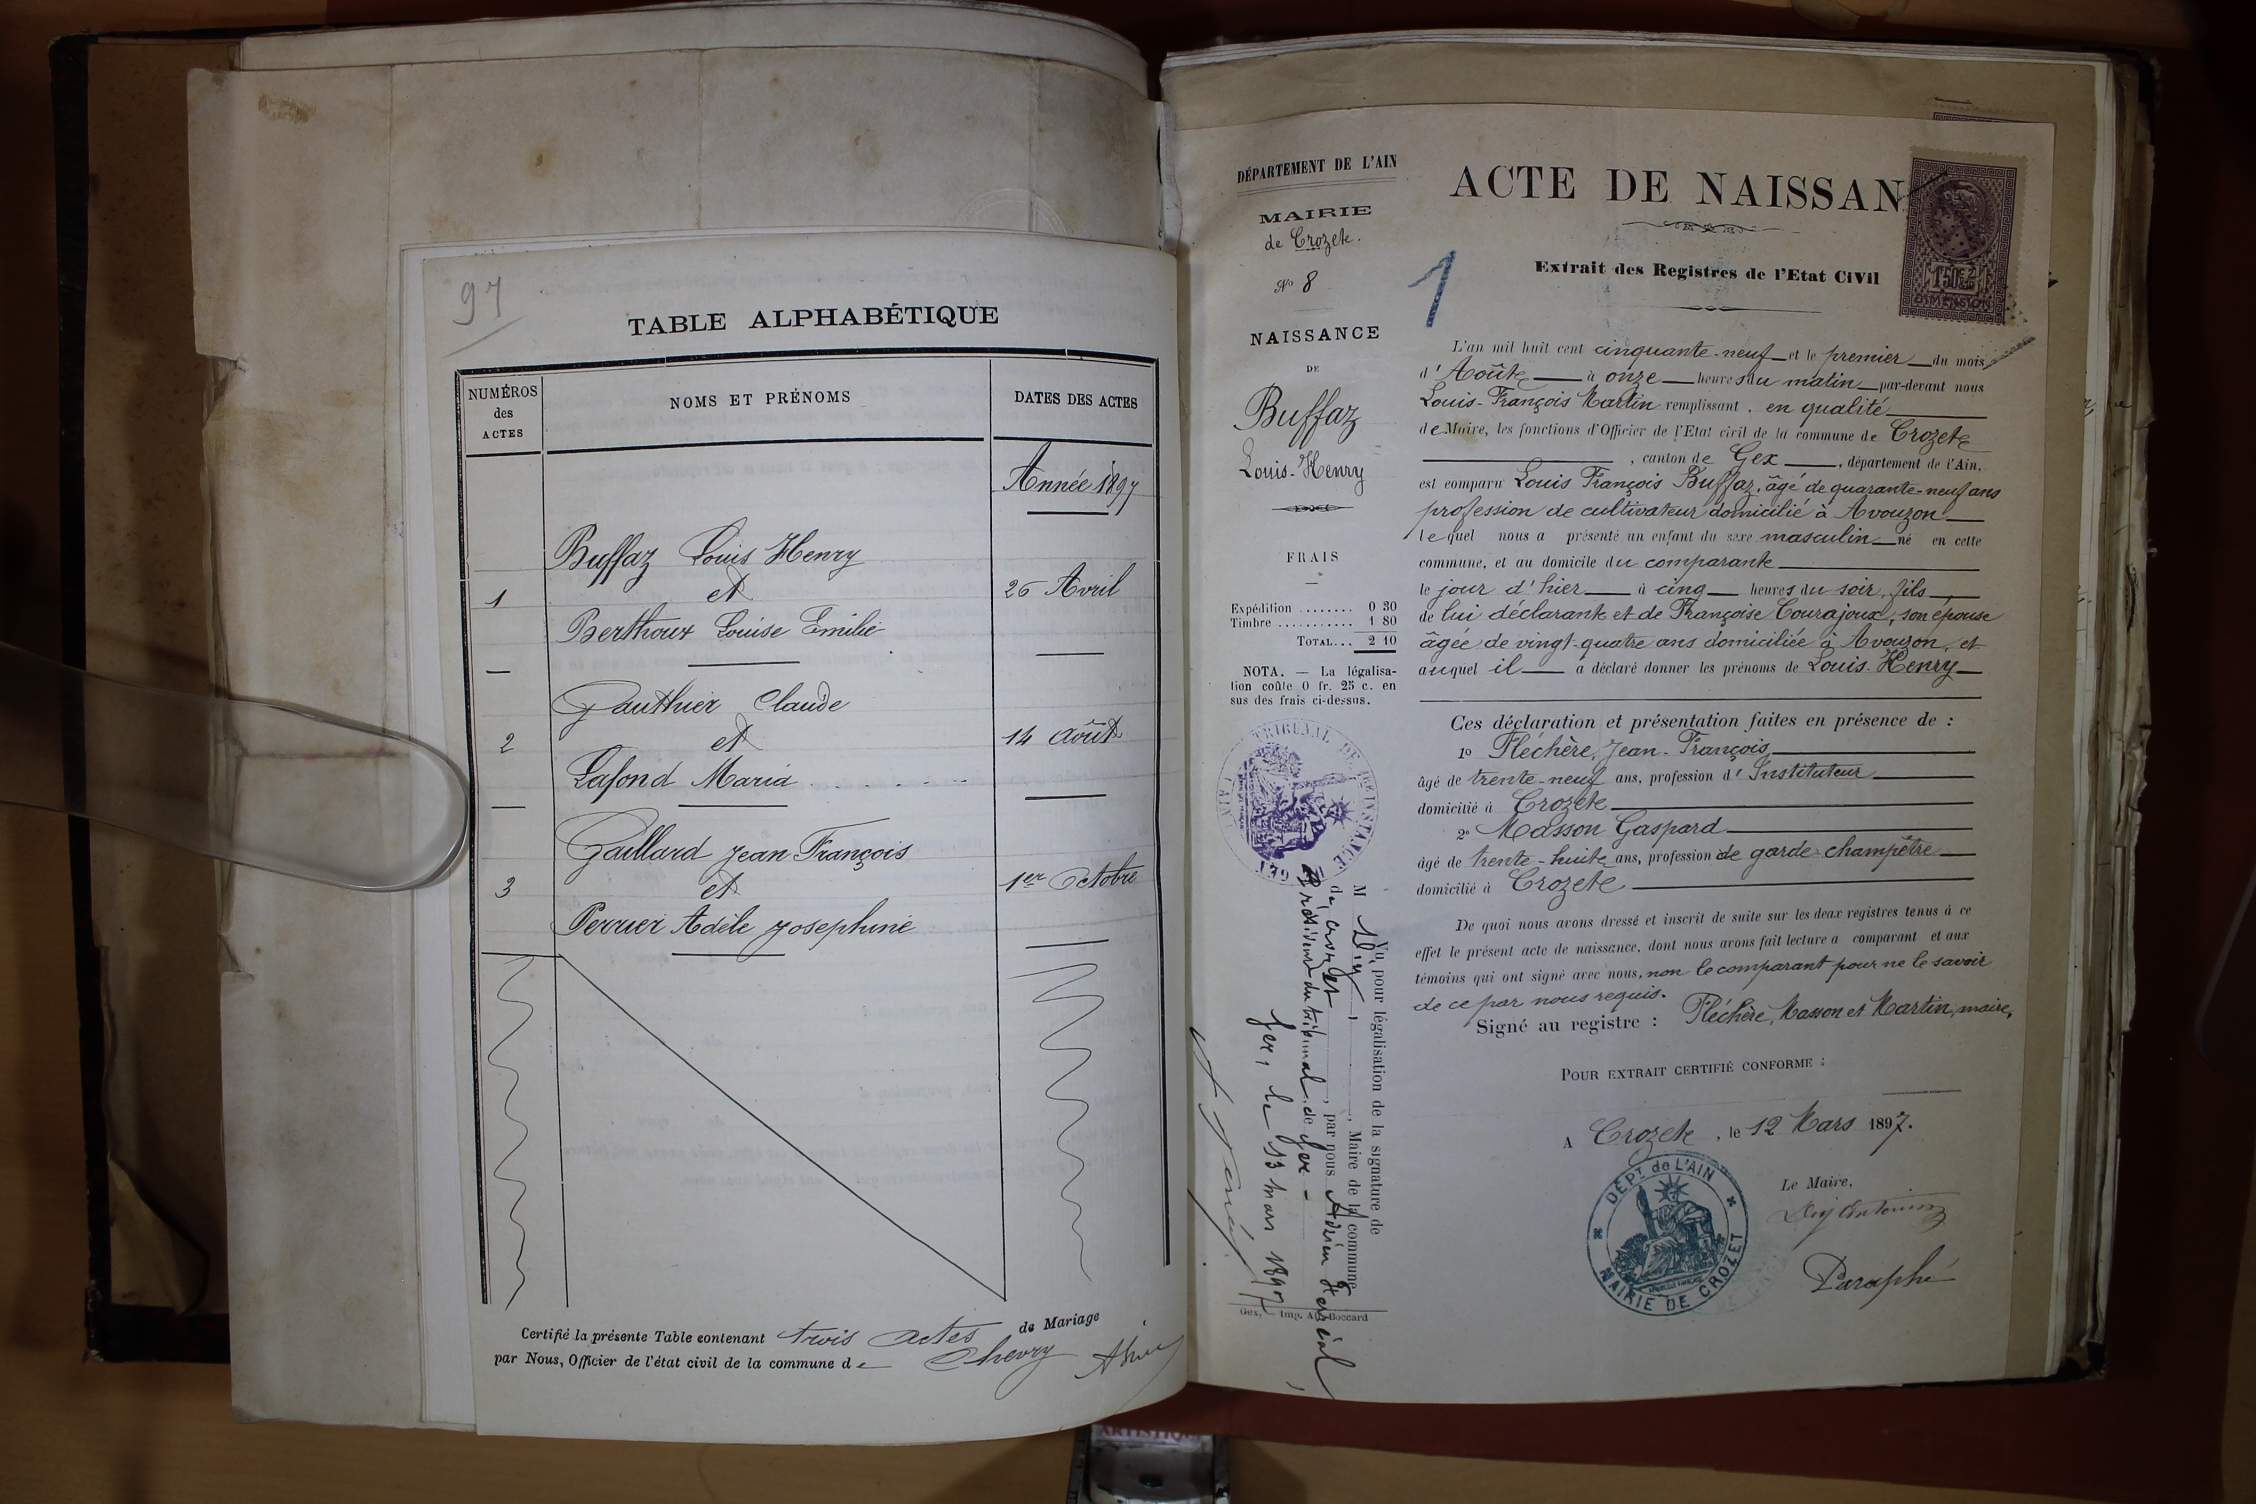 97
TABLE ALPHABÉTIQUE
NUMÉROS
des
ACTES
NOMS ET PRÉNOMS
DATES DES ACTES
Année 1897
Buffaz Louis Henry
1 et 26 Avril
Berthoux Louise Emilie
Gauthier Claude
2 et 14 Août
Lafond Maria
Gaillard Jean François
3 et 1er Octobre
Perrier Adèle Josephine
Certifié la présente Table contenant trois actes de Mariage
par Nous, Officier de l'état civil de la commune de Chevry
DÉPARTEMENT DE L'AIN
MAIRIE
de Crozete.
No 8
NAISSANCE
DE
Buffaz
Louis-Henry
FRAIS
Expédition ........ 0 30
Timbre ........... 1 80
TOTAL... 2 10
NOTA. — La légalisa-
tion coûte 0 fr. 25 c. en
sus des frais ci-dessus.
TRIBUNAL DE 1re INSTANCE GEX (AIN)
Vu pour légalisation de la signature de
M Dizy, Maire de la commune
de Crozet, par nous Adrien
Président du tribunal de Gex -
Gex, le 13 mars 1897
Gex, — Imp. Boccard
ACTE DE NAISSAN
1
1F50c
DIMENSION
Extrait des Registres de l'Etat CiVil
L'an mil huit cent cinquante-neuf et le premier du mois
d'Aoûte à onze heures du matin par-devant nous
Louis-François Martin remplissant, en qualité
de Maire, les fonctions d'Officier de l'Etat civil de la commune de Crozete
, canton de Gex, département de l'Ain,
est comparu Louis François Buffaz, âgé de quarante-neuf ans
profession de cultivateur domicilié à Avouzon
lequel nous a présenté un enfant du sexe masculin né en cette
commune, et au domicile du comparante
le jour d'hier à cinq heures du soir, fils
de lui déclarante et de Françoise Courajoux, son épouse
âgée de vingt-quatre ans domiciliée à Avouzon, et
auquel il a déclaré donner les prénoms de Louis-Henry
Ces déclaration et présentation faites en présence de :
1o Fléchère, Jean-François
âgé de trente-neuf ans, profession d'Instituteur
domicilié à Crozete
2o Masson Gaspard
âgé de trente-huite ans, profession de garde-champêtre
domicilié à Crozete
De quoi nous avons dressé et inscrit de suite sur les deux registres tenus à ce
effet le présent acte de naissance, dont nous avons fait lecture a comparant et aux
témoins qui ont signé avec nous, non le comparant pour ne le savoir
de ce par nous requis.
Signé au registre : Fléchère, Masson et Martin, maire.
POUR EXTRAIT CERTIFIÉ CONFORME :
A Crozete, le 12 Mars 1897.
Le Maire,
DÉPT de L'AIN
MAIRIE DE CROZET
Paraphé